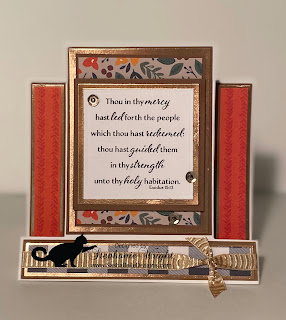 Thou in thy mercy
hast led forth the people
which thou hast redeemed:
thou hast guided them
in thy strength
unto thy holy habitation.
Exodus 15:13